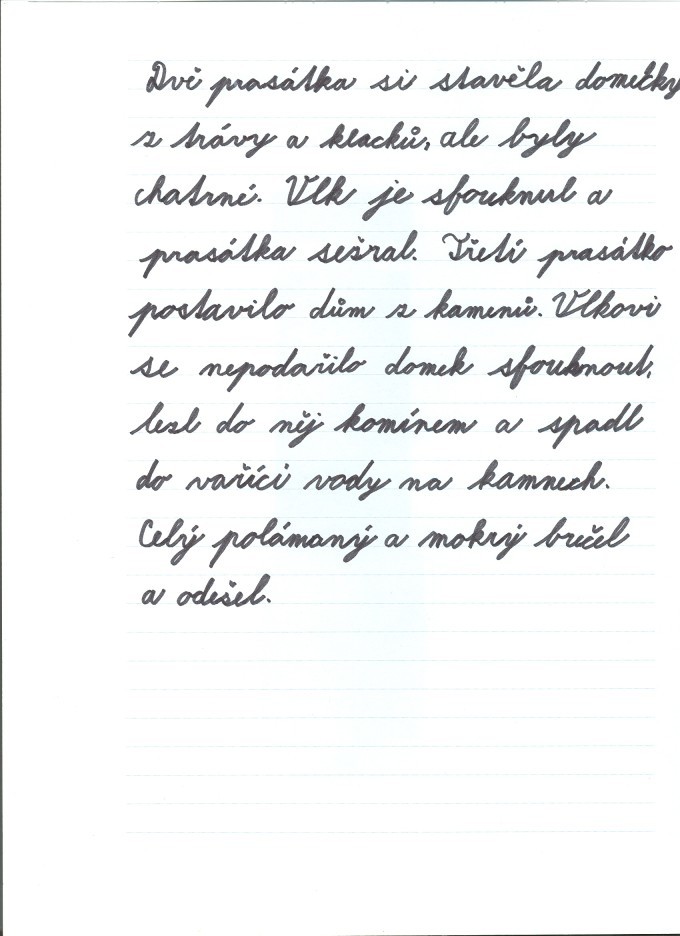 Dvě prasátka si stavěla domečky
z trávy a klacků, ale byly
chatrné. Vlk je sfouknul a
prasátka sežral. Třetí prasátko
postavilo dům z kamenů. Vlkovi
se nepodařilo domek sfouknout,
lezl do něj komínem a spadl
do vařící vody na kamnech.
Celý polámaný a mokrý brečel
a odešel.